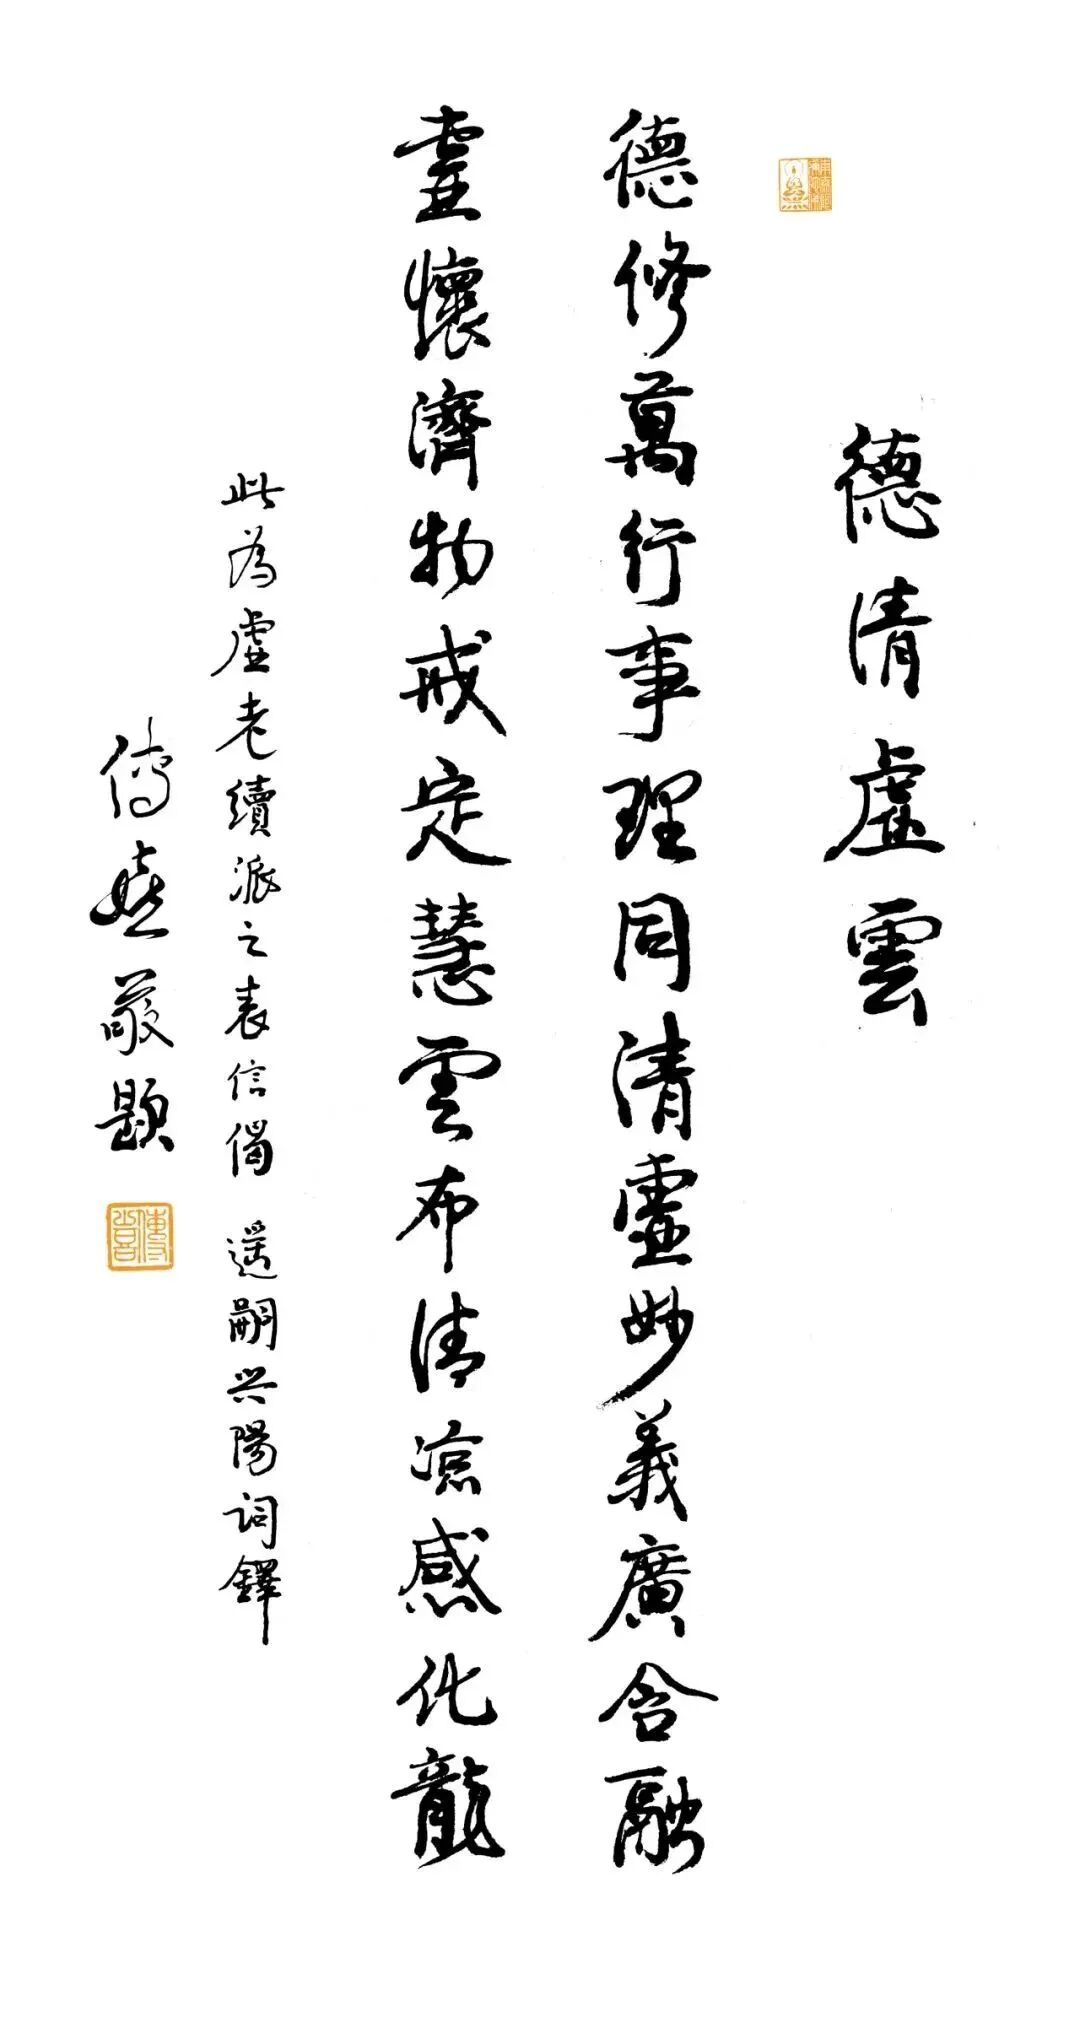 德清虛雲
德修萬行事理同清虛妙義廣含融
虛懷濟物戒定慧雲布清涼感化龍
此為虛老續派之表信偈 遥嗣兴陽詞鐸
傳喜敬題
傳喜